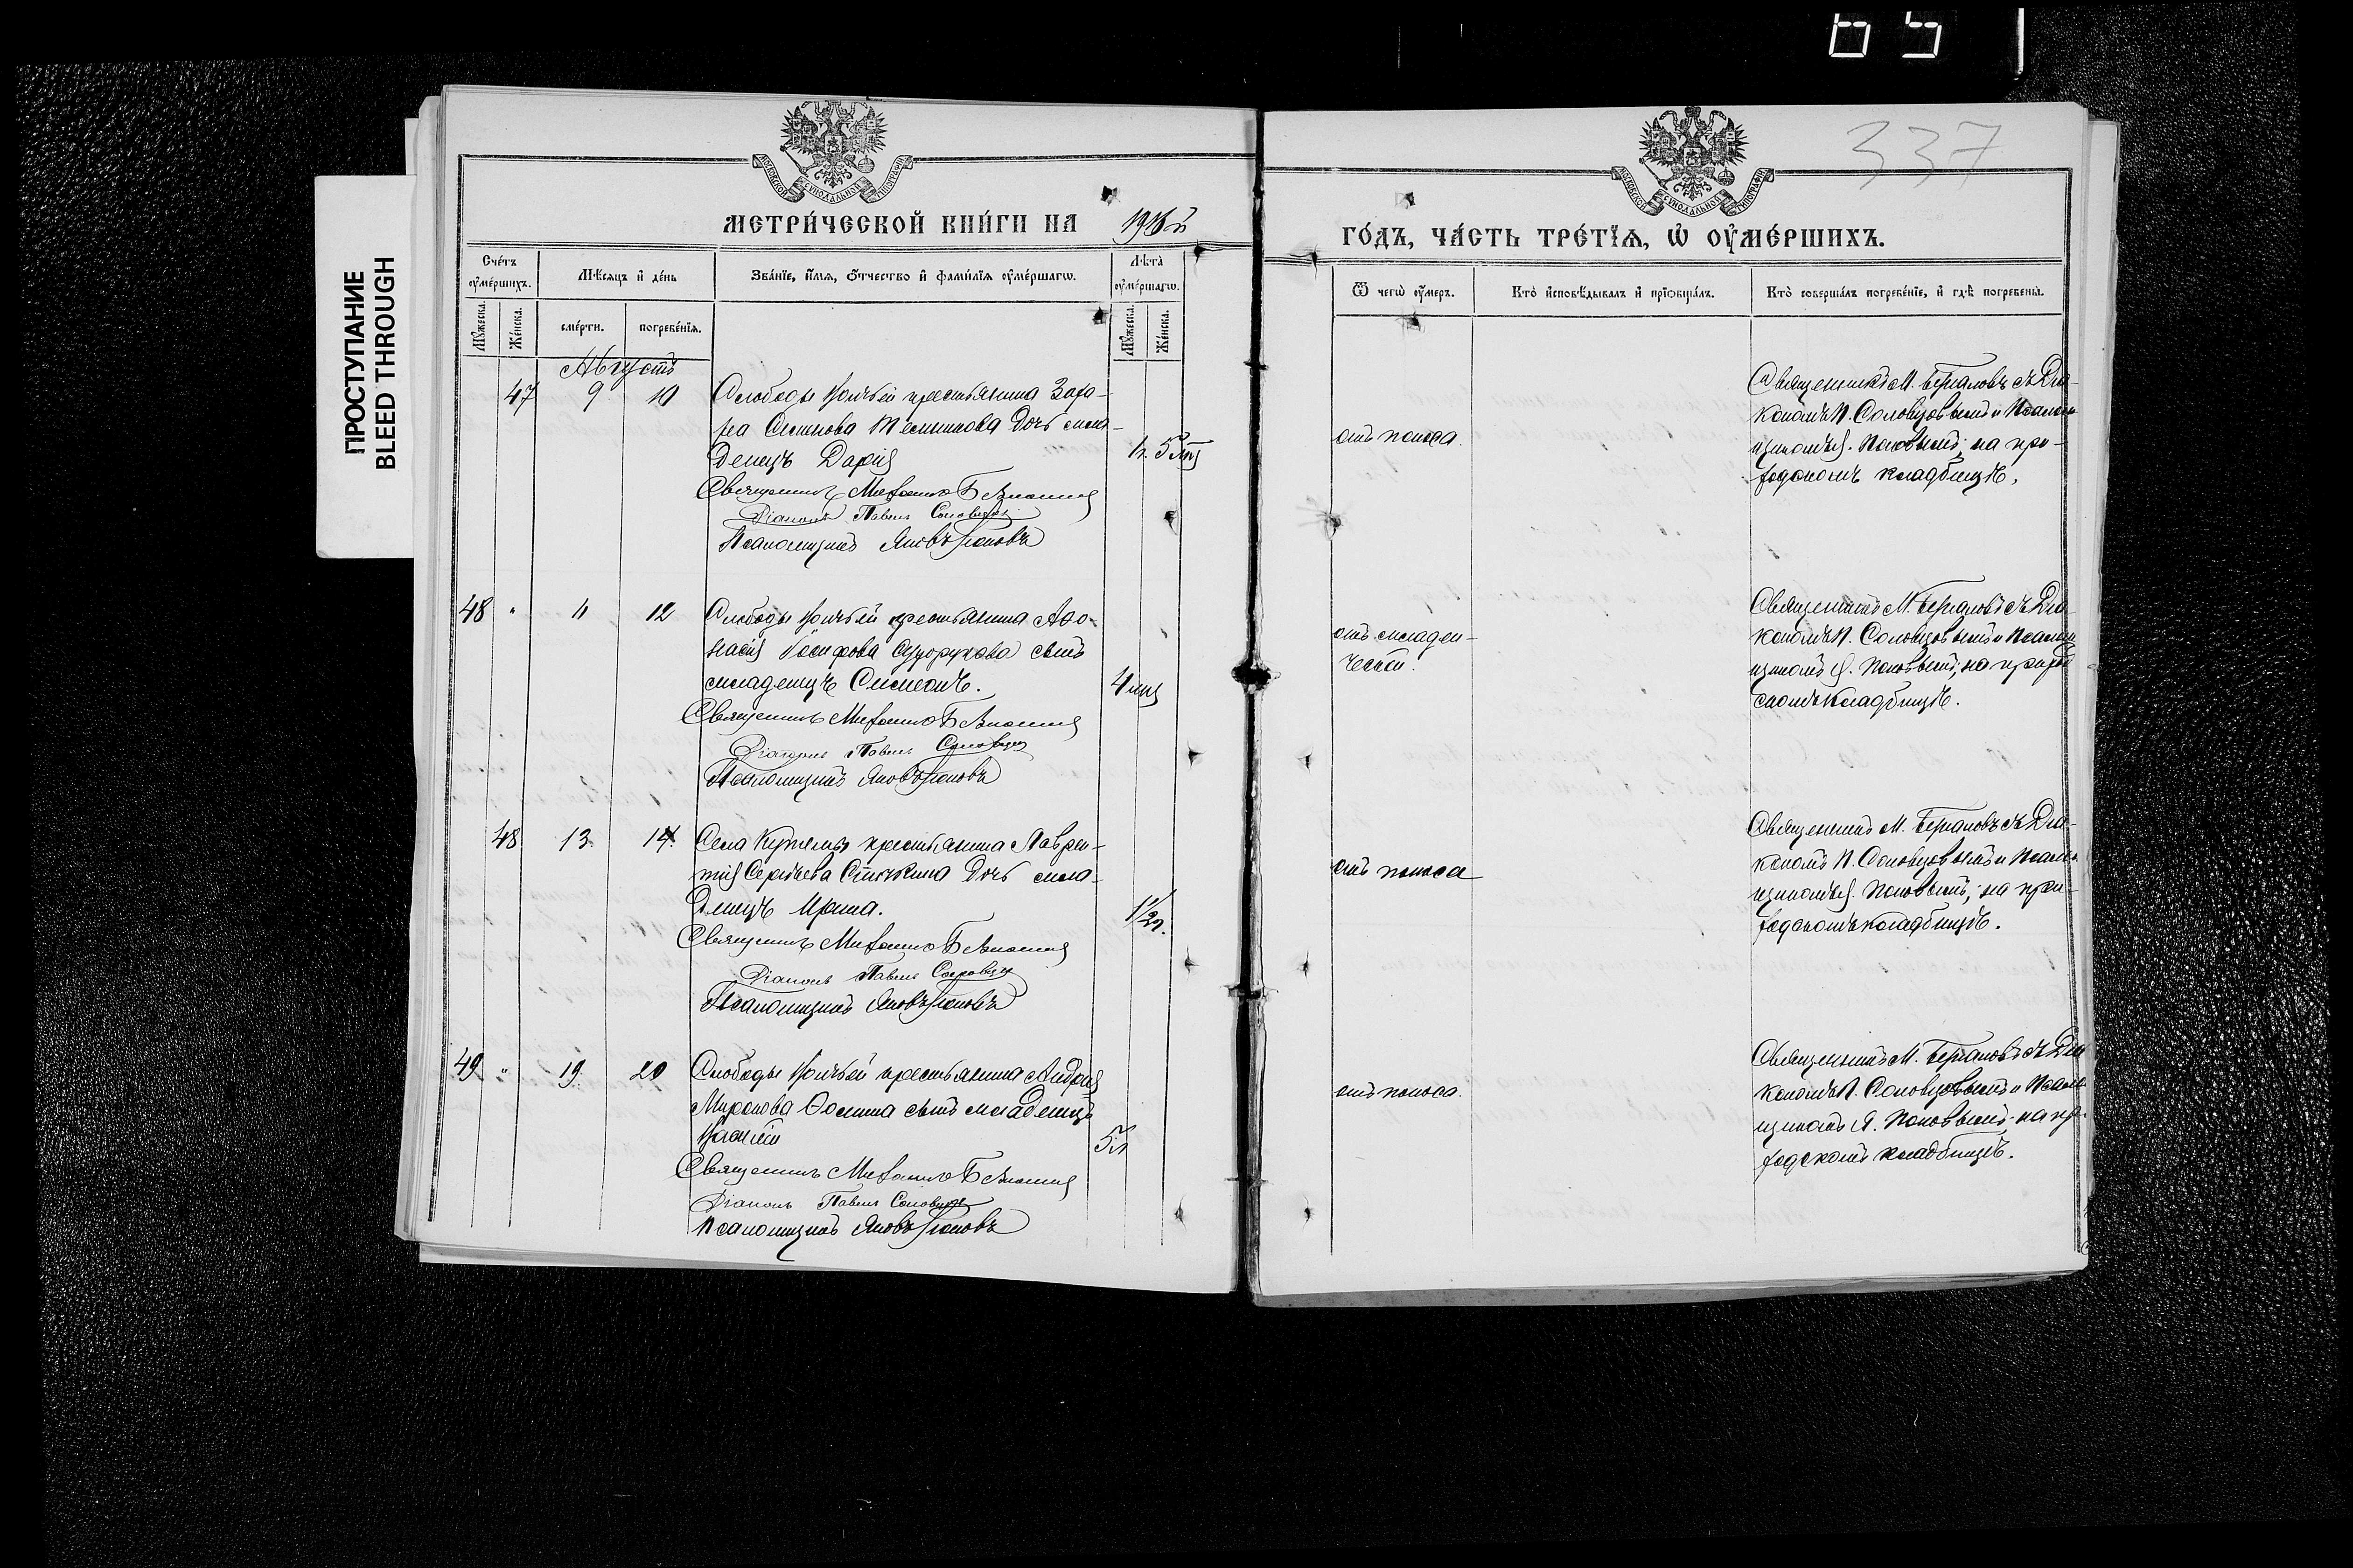 ПРОСТУПАНИЕ
BLEED THROUGH
337
МЕТРИ́ЧЕСКОЙ КНИ́ГИ НА 1916й
ГО́ДЪ, ЧА́СТЬ ТРЕ́ТІѦ, Ѡ҆ ОУ҆МЕ́РШИХЪ.
Счетъ оу҆ме́ршихъ.
Мѣсяцъ и҆ де́нь
Зва́нїе, и҆́мя, ѻ҆́тчество и҆ фами́лїя оу҆ме́ршагѡ.
Лѣта̀ оу҆ме́ршагѡ.
Ѿ чегѡ̀ оу҆́меръ.
Кто̀ и҆сповѣ́дывалъ и҆ прїѡбща́лъ.
Кто̀ соверша́лъ погребе́нїе, и҆ гдѣ̀ погребены̀.
Мꙋ́жеска.
Же́нска.
сме́рти.
погребе́нїя.
Мꙋ́жеска.
Же́нска.
Августъ
47 9 10 Слободы крестьянина Заха-
ра дочь мла-
денецъ Дарія
Священникъ Михаилъ
Діаконъ Павелъ Соловцовъ
Псаломщикъ Яковъ Поповъ
5 мц
отъ поноса.
Священникъ М. съ Діа-
кономъ П. Соловцовымъ и Псалом-
щикомъ Я. Поповымъ; на при-
ходскомъ кладбищѣ.
48 " 11 12 Слободы крестьянина Афо-
насія Іосифова Сухорукова сынъ
младенецъ Симеонъ.
Священникъ Михаилъ
Діаконъ Павелъ Соловцовъ
Псаломщикъ Яковъ Поповъ
4 мц
отъ младен-
ческой.
Священникъ М. съ Діа-
кономъ П. Соловцовымъ и Псалом-
щикомъ Я. Поповымъ; на приход-
скомъ кладбищѣ.
48 13 14 Села крестьянина Лаврен-
тія Сергѣева дочь мла-
денецъ Ирина.
Священникъ Михаилъ
Діаконъ Павелъ Соловцовъ
Псаломщикъ Яковъ Поповъ
1/2 г.
отъ поноса
Священникъ М. съ Діа-
кономъ П. Соловцовымъ и Псалом-
щикомъ Я. Поповымъ; на при-
ходскомъ кладбищѣ.
49 " 19 20 Слободы крестьянина Андрея
Миронова Ѳомина сынъ младенецъ
Священникъ Михаилъ
Діаконъ Павелъ Соловцовъ
Псаломщикъ Яковъ Поповъ
отъ поноса.
Священникъ М. съ Діа-
кономъ П. Соловцовымъ и Псалом-
щикомъ Я. Поповымъ; на при-
ходскомъ кладбищѣ.